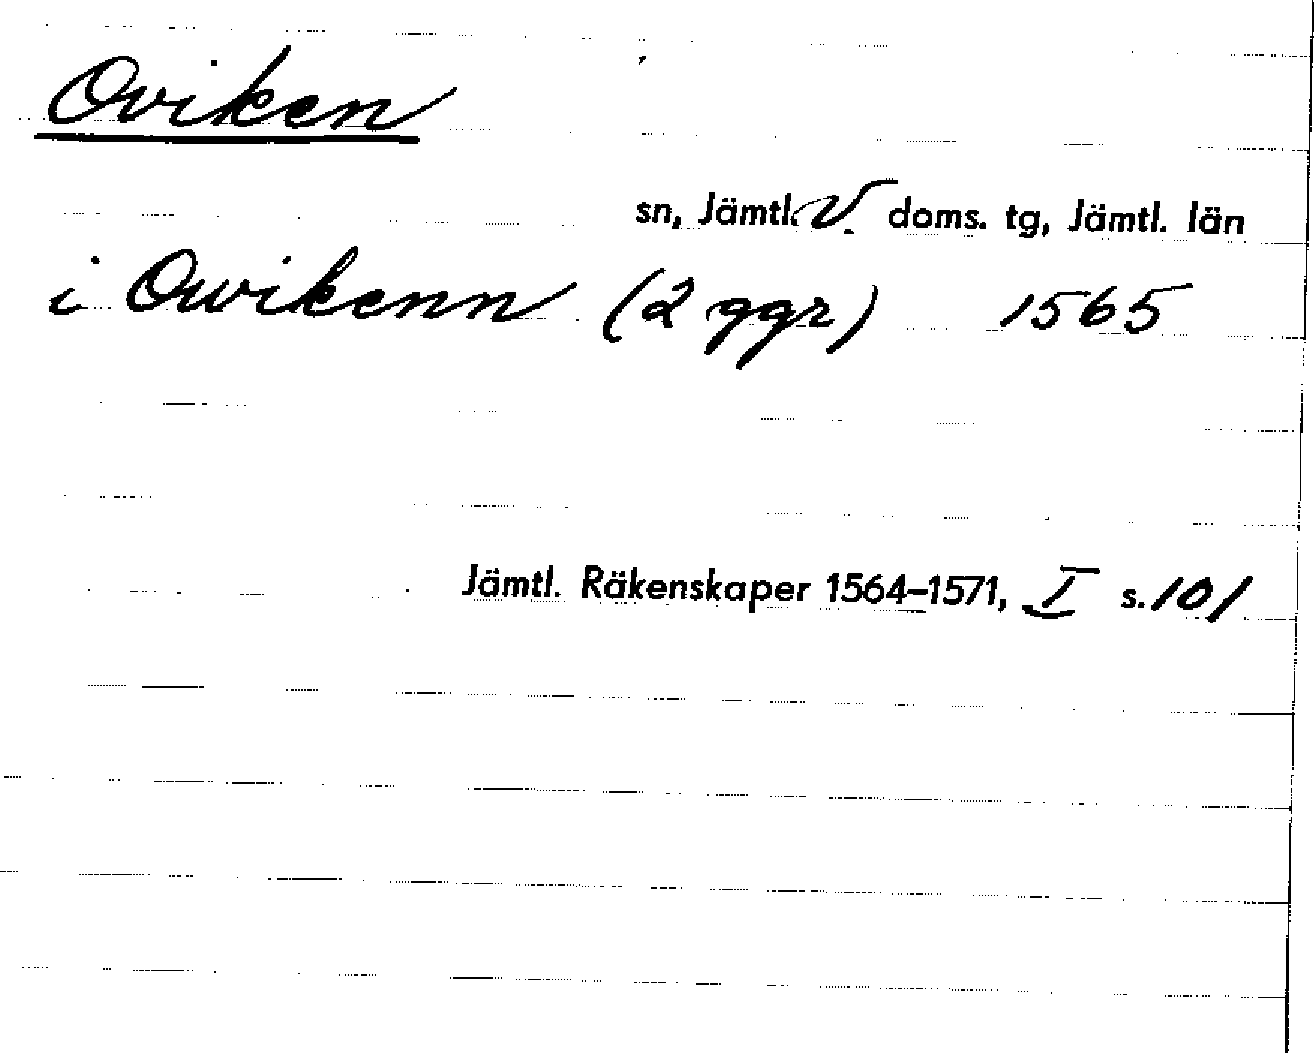 Oviken
sn, Jämtl. V. doms. tg, Jämtl. län
i Owikenn (2 ggr) 1565
Jämtl. Räkenskaper 1564–1571, I s. 101